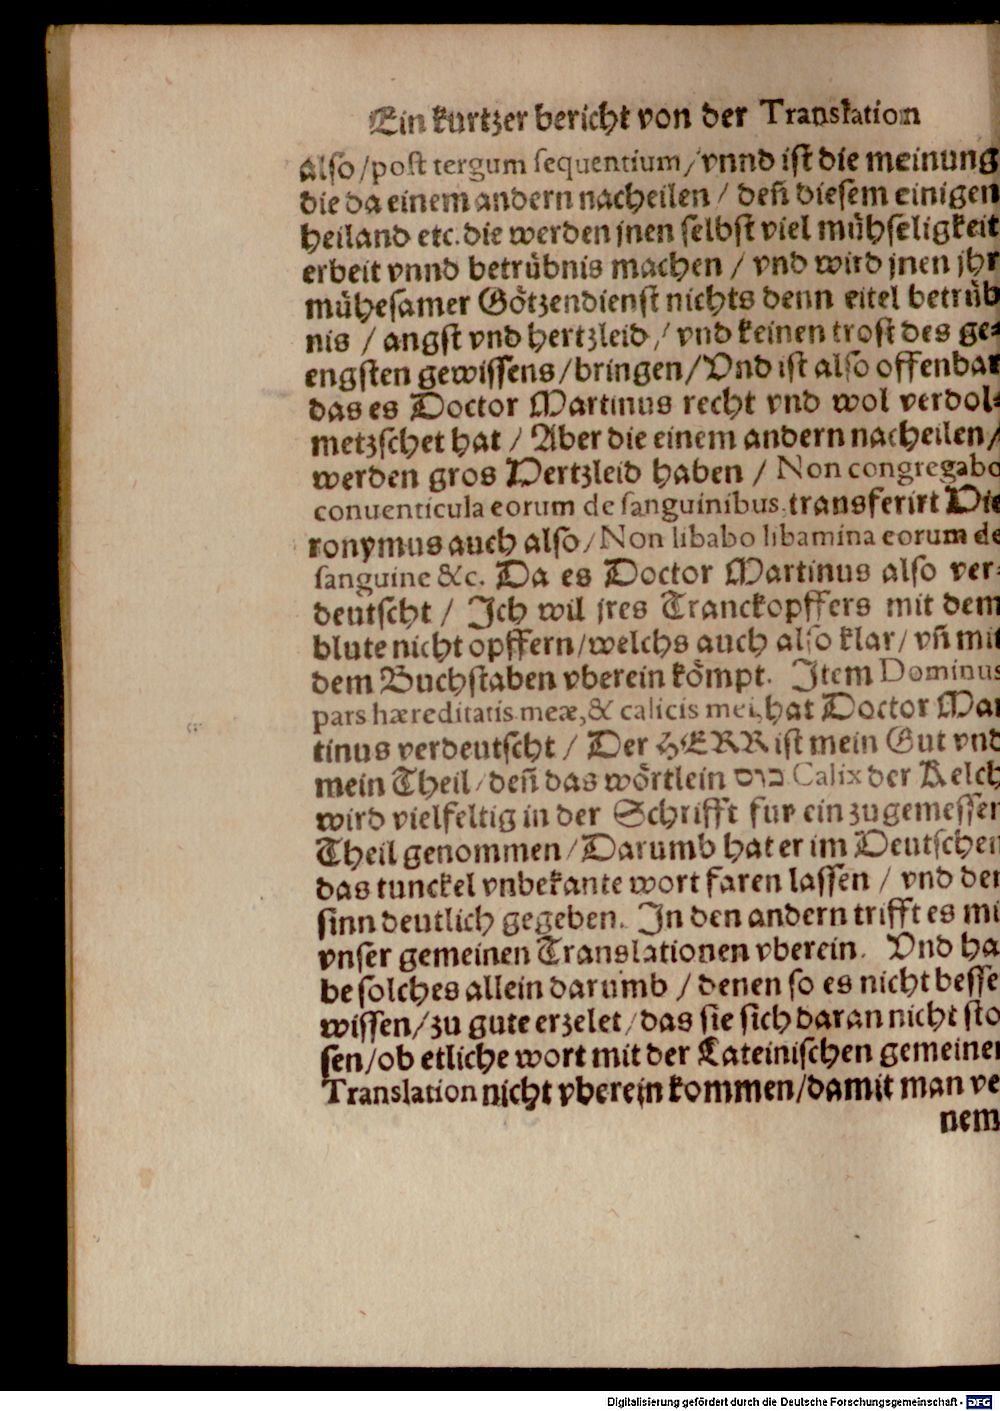 Ein kurtzer bericht von der Translation
also/post tergum sequentium/vnnd ist die meinung
die da einem andern nacheilen / deñ diesem einigen
heiland etc. die werden jnen selbst viel mühseligkeit
erbeit vnnd betrübnis machen / vnd wird jnen jhr
mühesamer Götzendienst nichts denn eitel betrüb
nis / angst vnd hertzleid / vnd keinen trost des ge⸗
engsten gewissens/bringen/Vnd ist also offenbar
das es Doctor Martinus recht vnd wol verdol⸗
metzschet hat / Aber die einem andern nacheilen/
werden gros Hertzleid haben / Non congregabo
conuenticula eorum de sanguinibus, transferirt Hie
ronymus auch also/Non libabo libamina eorum de
sanguine &c. Da es Doctor Martinus also ver⸗
deutscht / Ich wil jres Tranckopffers mit dem
blute nicht opffern/welchs auch also klar/vñ mit
dem Buchstaben vberein kömpt. Item Dominus
pars hæreditatis meæ,& calicis mei, hat Doctor Mar
tinus verdeutscht / Der HERR ist mein Gut vnd
mein Theil/deñ das wörtlein כוס Calix der Kelch
wird vielfeltig in der Schrifft fur ein zugemessen
Theil genommen/Darumb hat er im Deutschen
das tunckel vnbekante wort faren lassen / vnd den
sinn deutlich gegeben. In den andern trifft es mi
vnser gemeinen Translationen vberein. Vnd ha
be solches allein darumb / denen so es nicht besse
wissen/zu gute erzelet/das sie sich daran nicht sto
sen/ob etliche wort mit der Lateinischen gemeinen
Translation nicht vberein kommen/damit man ve
nem
Digitalisierung gefördert durch die Deutsche Forschungsgemeinschaft - DFG